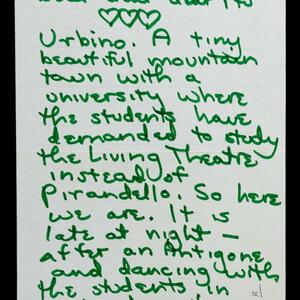 Urbino. A tiny
beautiful mountain
town with a
university where
the students have
demanded to study
the Living Theatre
instead of
Pirandello. So here
we are. It is
late at night —
after an Antigone
and dancing with
the students in